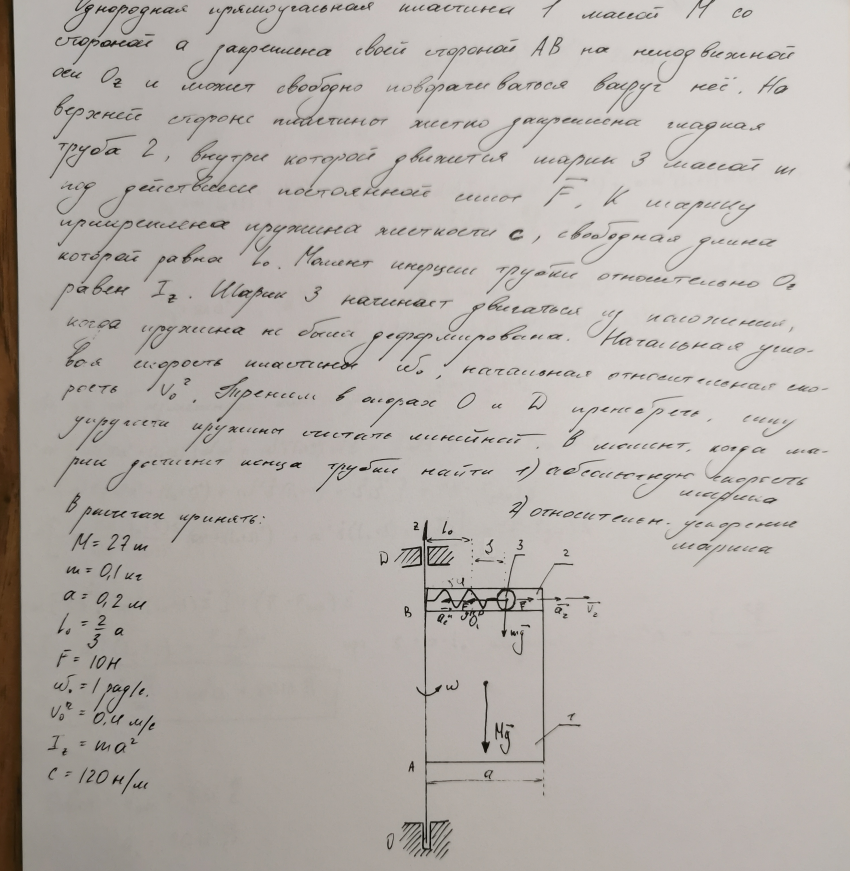 Однородная прямоугольная пластина 1 массой М со
стороной а закреплена своей стороной АВ на неподвижной
оси Oz и может свободно поворачиваться вокруг неё. На
верхней стороне пластины жестко закреплена гладкая
труба 2, внутри которой движется шарик 3 массой m
под действием постоянной силы F. К шарику
прикреплена пружина жесткости с, свободная длина
которой равна l₀. Момент инерции трубки относительно Oz
равен Iz. Шарик 3 начинает двигаться из положения,
когда пружина не была деформирована. Начальная угло-
вая скорость пластины ω₀, начальная относительная ско-
рость V₀ʳ. Трением в опорах О и D пренебречь, силу
упругости пружины считать линейной. В момент, когда ша-
рик достигнет конца трубки найти 1) абсолютную скорость
шарика
2) относительн. ускорение
шарика
В расчетах принять:
M = 27m
m = 0,1 кг
a = 0,2 м
l₀ = 2/3 a
F = 10 Н
ω₀ = 1 рад/с.
V₀ʳ = 0,4 м/с
Iz = ma²
c = 120 н/м
z
l₀
S
3
2
D
B
F
mg
ω
Mg
1
A
a
O